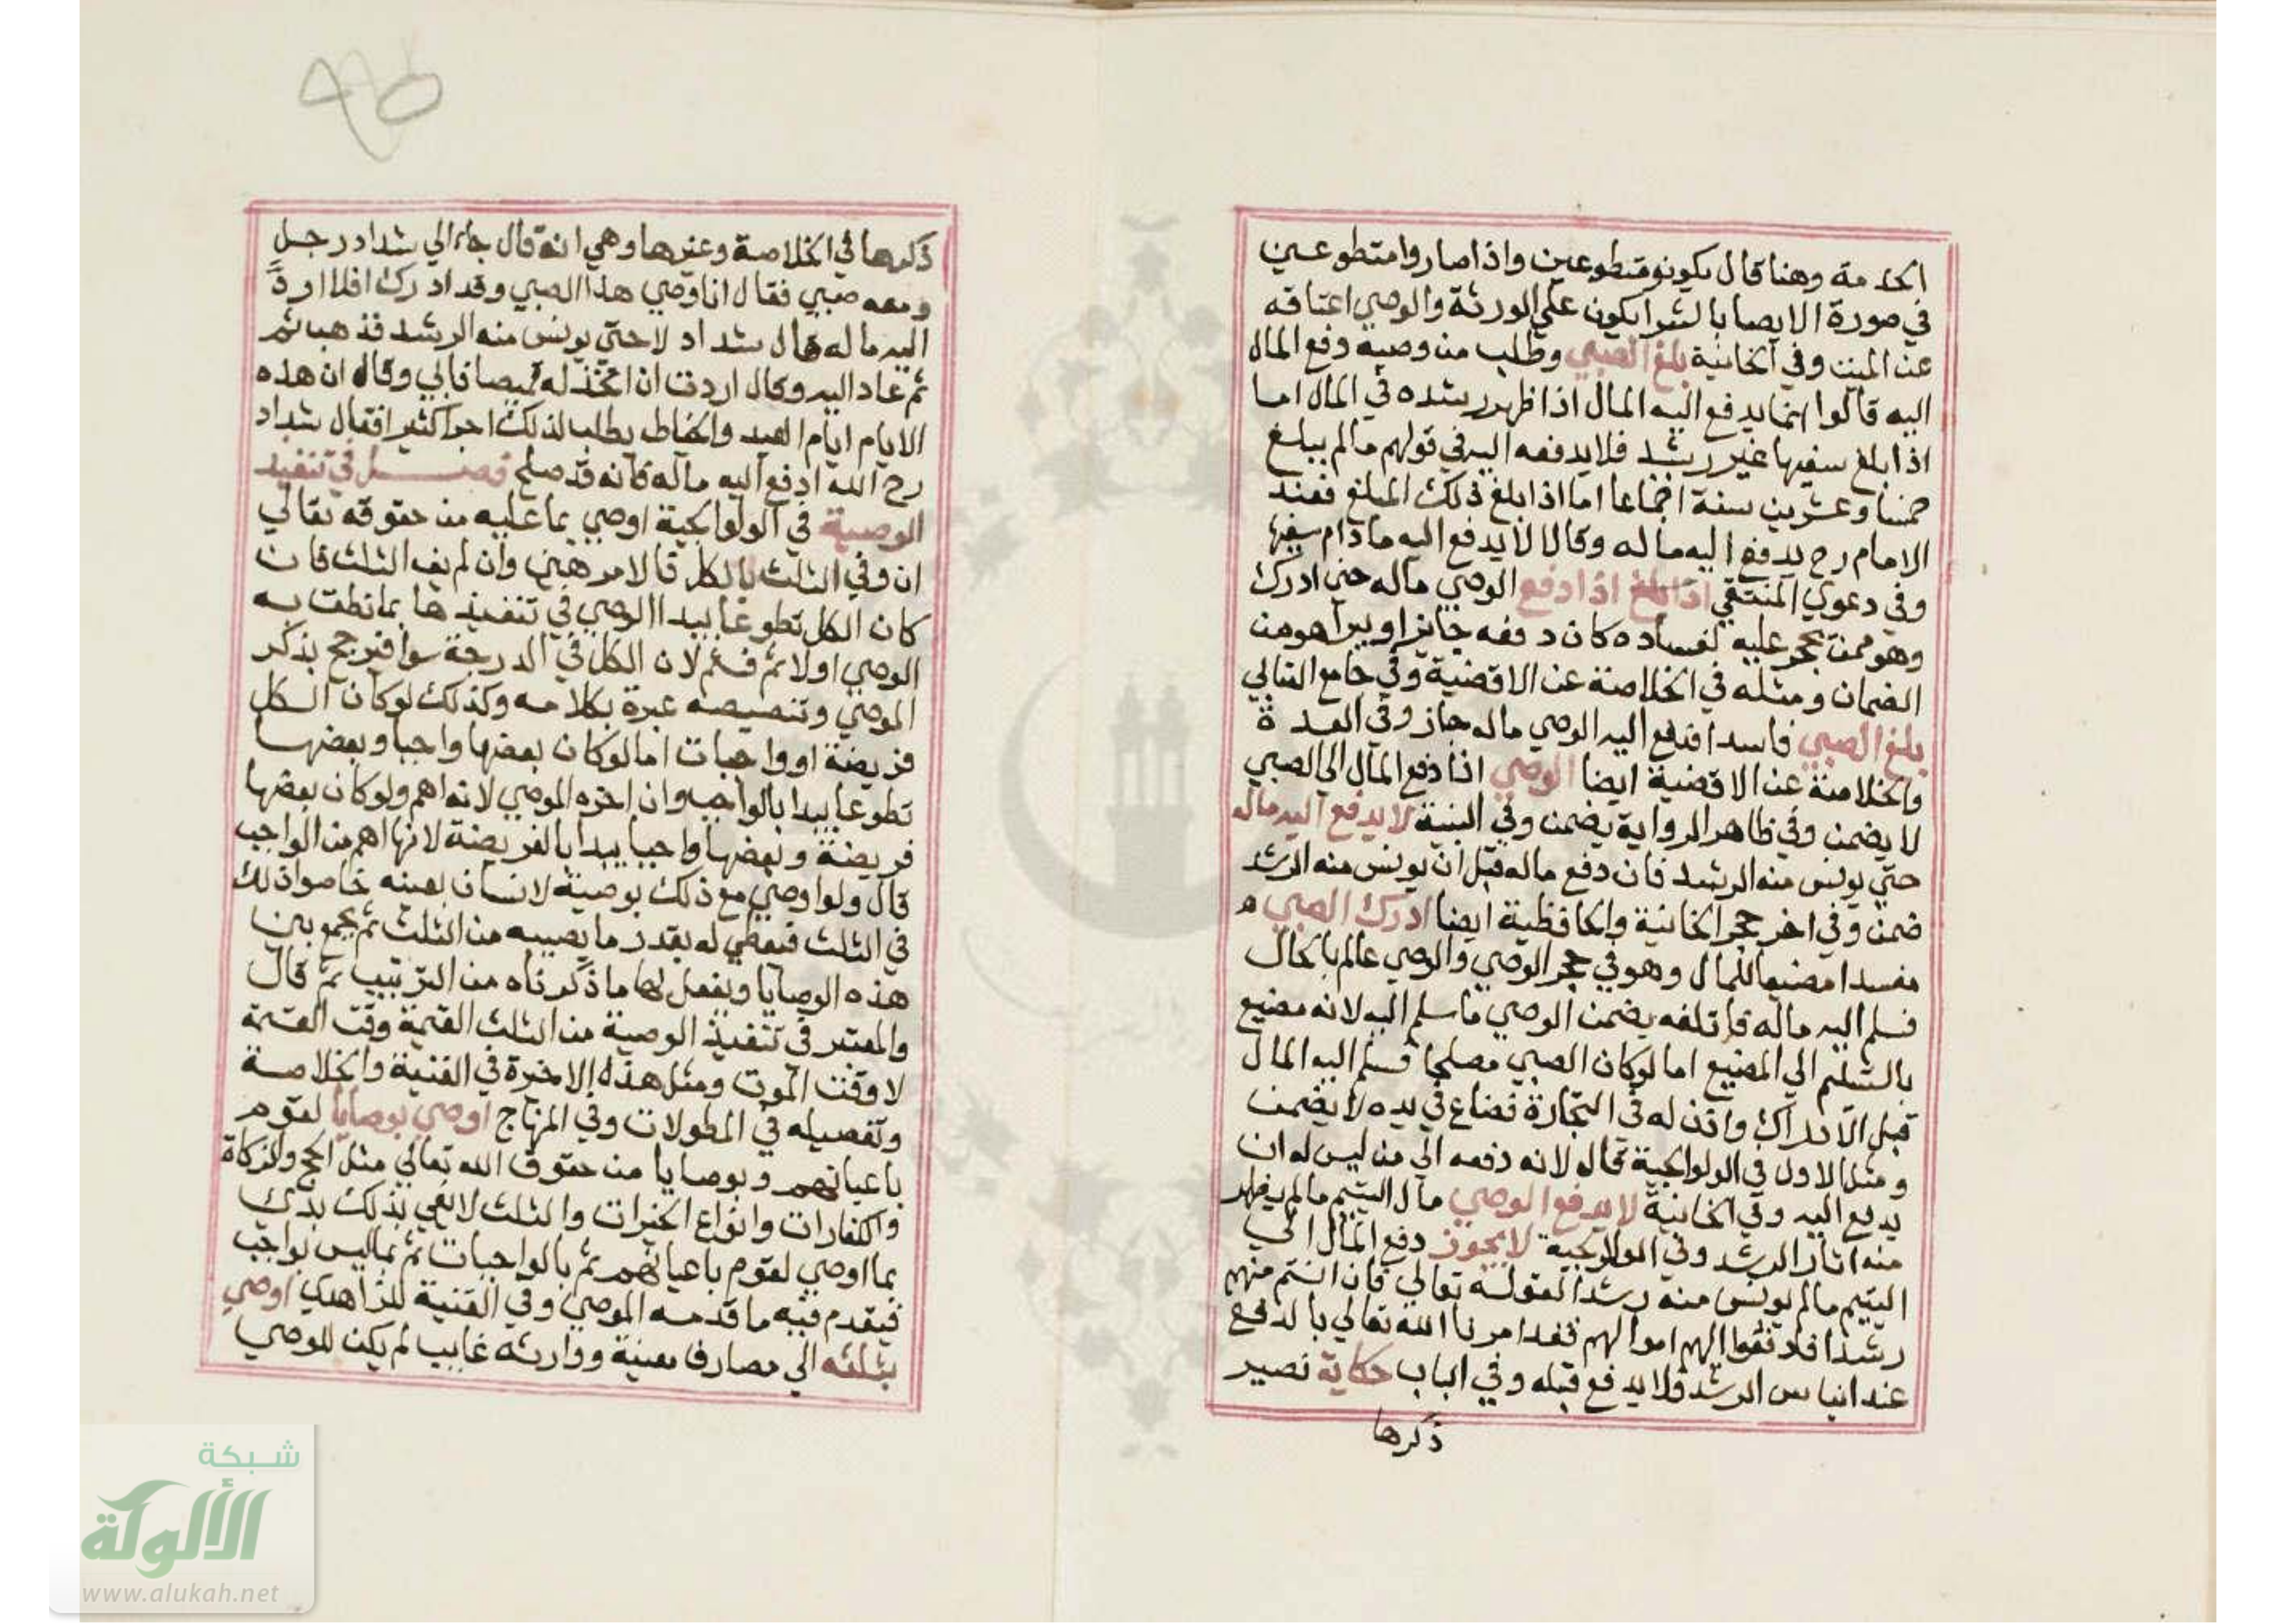 الخدمة وهنا قال يكونو متطوعين واذا صاروا متطوعين
في صورة الايصا بالشرا يكون علي الورثة والوصي اعتاقه
عن الميت وفي الخانية بلغ الصبي وطلب من وصيه دفع المال
اليه قالوا انما يدفع اليه المال اذا ظهر رشده في المال اما
اذا بلغ سفيها غير رشيد فلا يدفعه اليه في قولهم مالم يبلغ
خمسا وعشرين سنة اجماعا اما اذا بلغ ذلك المبلغ فعند
الامام رح يدفع اليه ماله وقالا لا يدفع اليه ما دام سفيها
وفي دعوي المنتقي اذا بلغ اذا دفع الوصي ماله حين ادرك
وهو ممن يحجر عليه لفساده كان دفعه جايزا ويبرا هو من
الضمان ومثله في الخلاصة عن الاقضية وفي جامع الفتاوي
بلغ الصبي فاسدا فدفع اليه الوصي ماله جاز وفي العدة
والخلاصة عن الاقضية ايضا الوصي اذا دفع المال الي الصبي
لا يضمن وفي ظاهر الرواية يضمن وفي لا يدفع اليه ماله
حتي يونس منه الرشد فان دفع ماله قبل ان يونس منه الرشد
ضمن وفي اخر حجر الخانية والحافظية ايضا ادرك الصبي
مفسدا مضيعا للمال وهو في حجر الوصي والوصي عالم بالحال
فسلم اليه ماله فاتلفه يضمن الوصي ما سلم اليه لانه مضيع
بالتسليم الي المضيع اما لو كان الصبي مصلحا فسلم اليه المال
قبل الادراك واذن له في التجارة فضاع في يده لا يضمن
ومثل الاول في الولوالجية قال لانه دفعه الي من ليس له ان
يدفع اليه وفي الخانية لا يدفع الوصي مال اليتيم مالم يظهر
منه اثار الرشد وفي الولوالجية لا يجوز دفع المال الي
اليتيم مالم يونس منه رشدا لقوله تعالي فان انستم منهم
رشدا فادفعوا اليهم اموالهم فقد امرنا الله تعالي بالدفع
عند ايناس الرشد فلا يدفع قبله وفي الباب حكاية نصير
ذكرها
ذكرها في الخلاصة وغيرها وهي انه قال جاء الي شداد رجل
ومعه صبي فقال انا وصي هذا الصبي وقد ادرك افلا ارد
اليه ماله قال شداد لا حتي يونس منه الرشد فذهبا ثم
ثم عاد اليه وقال اردت ان اتخذ له قميصا فابي وقال ان هذه
الايام ايام العيد والخياط يطلب لذلك اجرا كثيرا فقال شداد
رح الله ادفع اليه ماله فانه قد صلح فصل في تنفيذ
الوصية في الولوالجية اوصي بما عليه من حقوقه تعالي
ان وفي الثلث بالكل فالامر هين وان لم يف الثلث فان
كان الكل تطوعا يبدا الوصي في تنفيذها بما نطق به
الموصي اولا ثم فثم لان الكل في الدرجة سوا فيرجح بذكر
الموصي وتنصيصه عبرة بكلامه وكذلك لو كان الكل
فريضة او واجبات اما لو كان بعضها واجبا وبعضها
تطوعا يبدا بالواجب وان اخره الموصي لانه اهم ولو كان بعضها
فريضة وبعضها واجبا يبدا بالفريضة لانها اهم من الواجب
قال ولو اوصي مع ذلك بوصية لانسان بعينه خاصوا ذلك
في الثلث فيعطي له بقدر ما يصيبه من الثلث ثم يجمع بين
هذه الوصايا ويفعل لها ما ذكرناه من الترتيب ثم قال
والمعتبر في تنفيذ الوصية من الثلث القيمة وقت القسمة
لا وقت الموت ومثل هذه الاخيرة في القنية والخلاصة
وتفصيله في المطولات وفي المنهاج اوصي بوصايا لقوم
باعيانهم وبوصايا من حقوق الله تعالي مثل الحج والزكاة
والكفارات وانواع الخيرات والثلث لا يفي بذلك بدئ
بما اوصي لقوم باعيانهم ثم بالواجبات ثم بما ليس بواجب
فيقدم فيه ما قدمه الموصي وفي القنية للزاهدي اوصي
بثلثه الي مصارف معينة ووارثه غايب لم يكن للوصي
شبكة
الألوكة
www.alukah.net